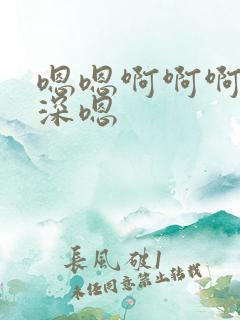 嗯嗯啊啊啊
深嗯
长风破1
未经同意禁止转载